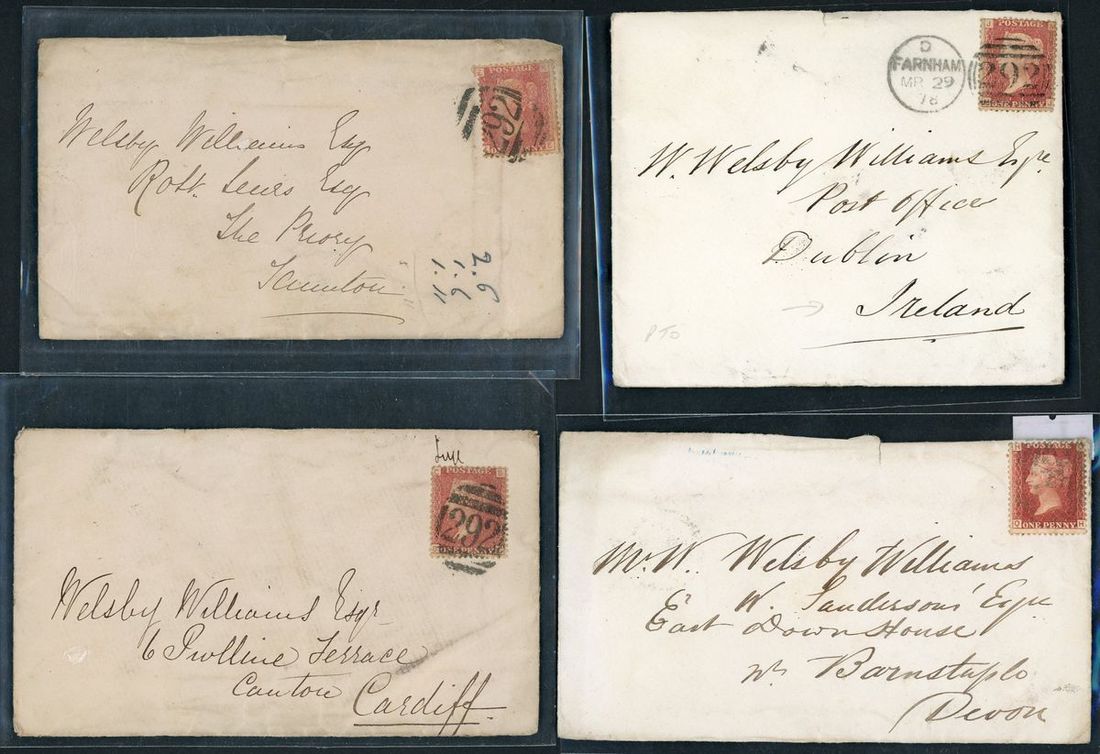 Welsby Williams Esq
Robt. Esq
The Priory
Taunton
2.6
1.6
1.11
POSTAGE
292
D
FARNHAM
MR 29
78
POSTAGE
292
ONE PENNY
W. Welsby Williams Esqre
Post Office
Dublin
Ireland
PTO
POSTAGE
292
ONE PENNY
Welsby Williams Esqr
6 Terrace
Canton
Cardiff
POSTAGE
H
ONE PENNY
Q H
Mr. W. Welsby Williams
W. Sanderson's Esqre
East Down House
Nr Barnstaple
Devon